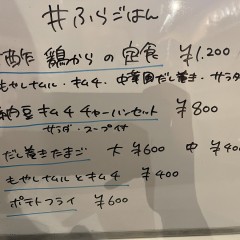 #ふらごはん
酢鶏からの定食 ¥1,200
もやしナムル・キムチ・中華風だし巻き・サラダ
納豆キムチチャーハンセット ¥800
サラダ・スープ付
だし巻きたまご 大 ¥600 中 ¥400
もやしナムルとキムチ ¥400
ポテトフライ ¥600